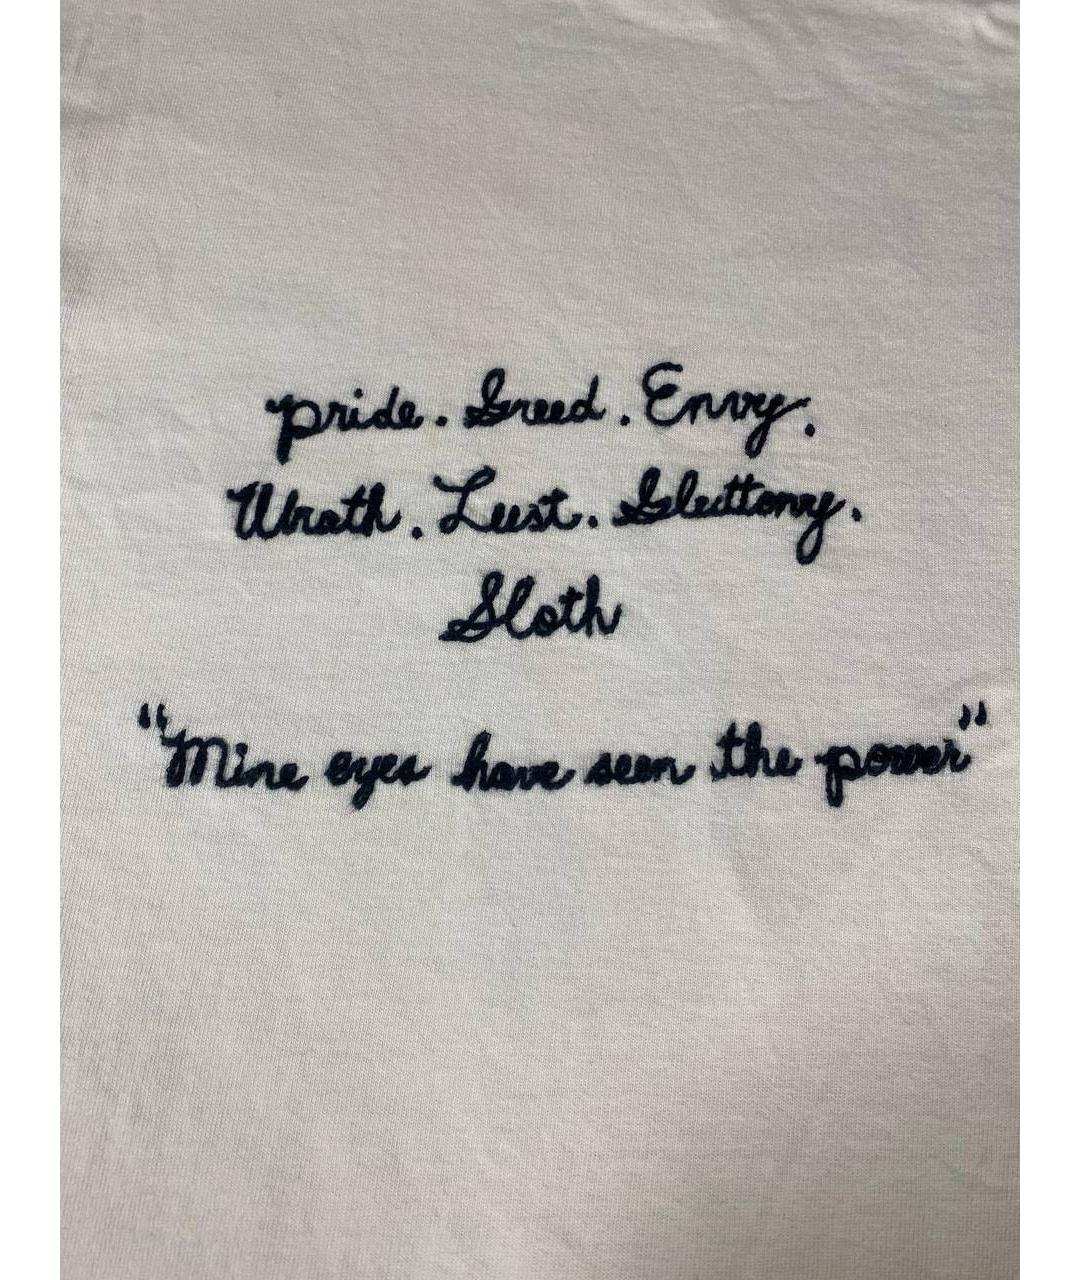 pride. Greed. Envy.
Wrath. Lust. Gluttony.
Sloth
"Mine eyes have seen the power"